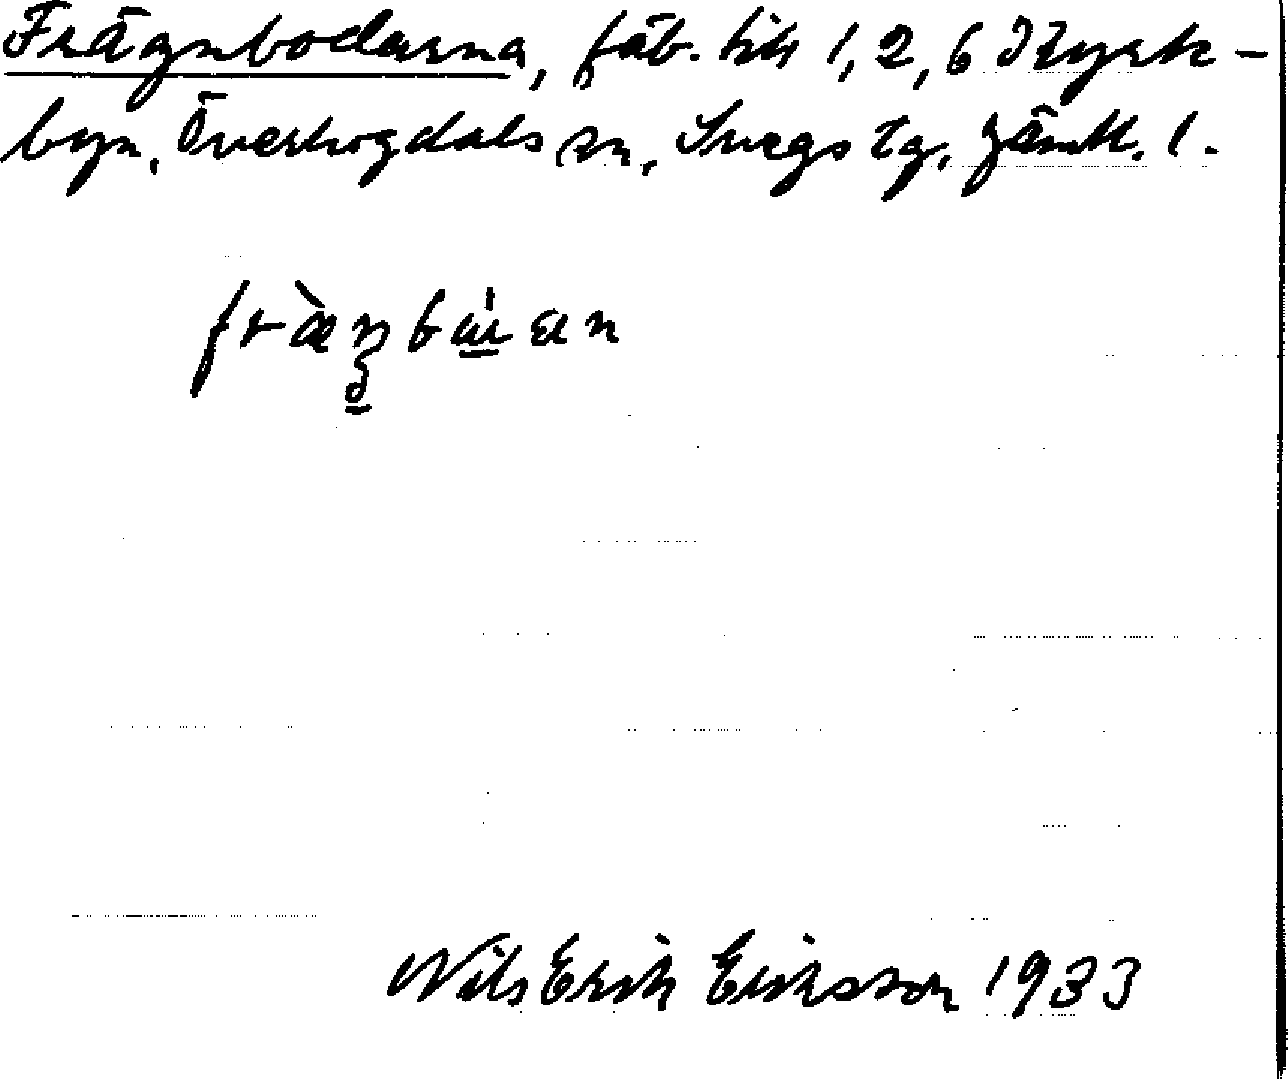 Frägnbodarna, fäb. till 1, 2, 6 Kyrk-
byn, Överhogdals sn, Svegs tg, Jämtl. l.
Nils Erik Eriksson 1933